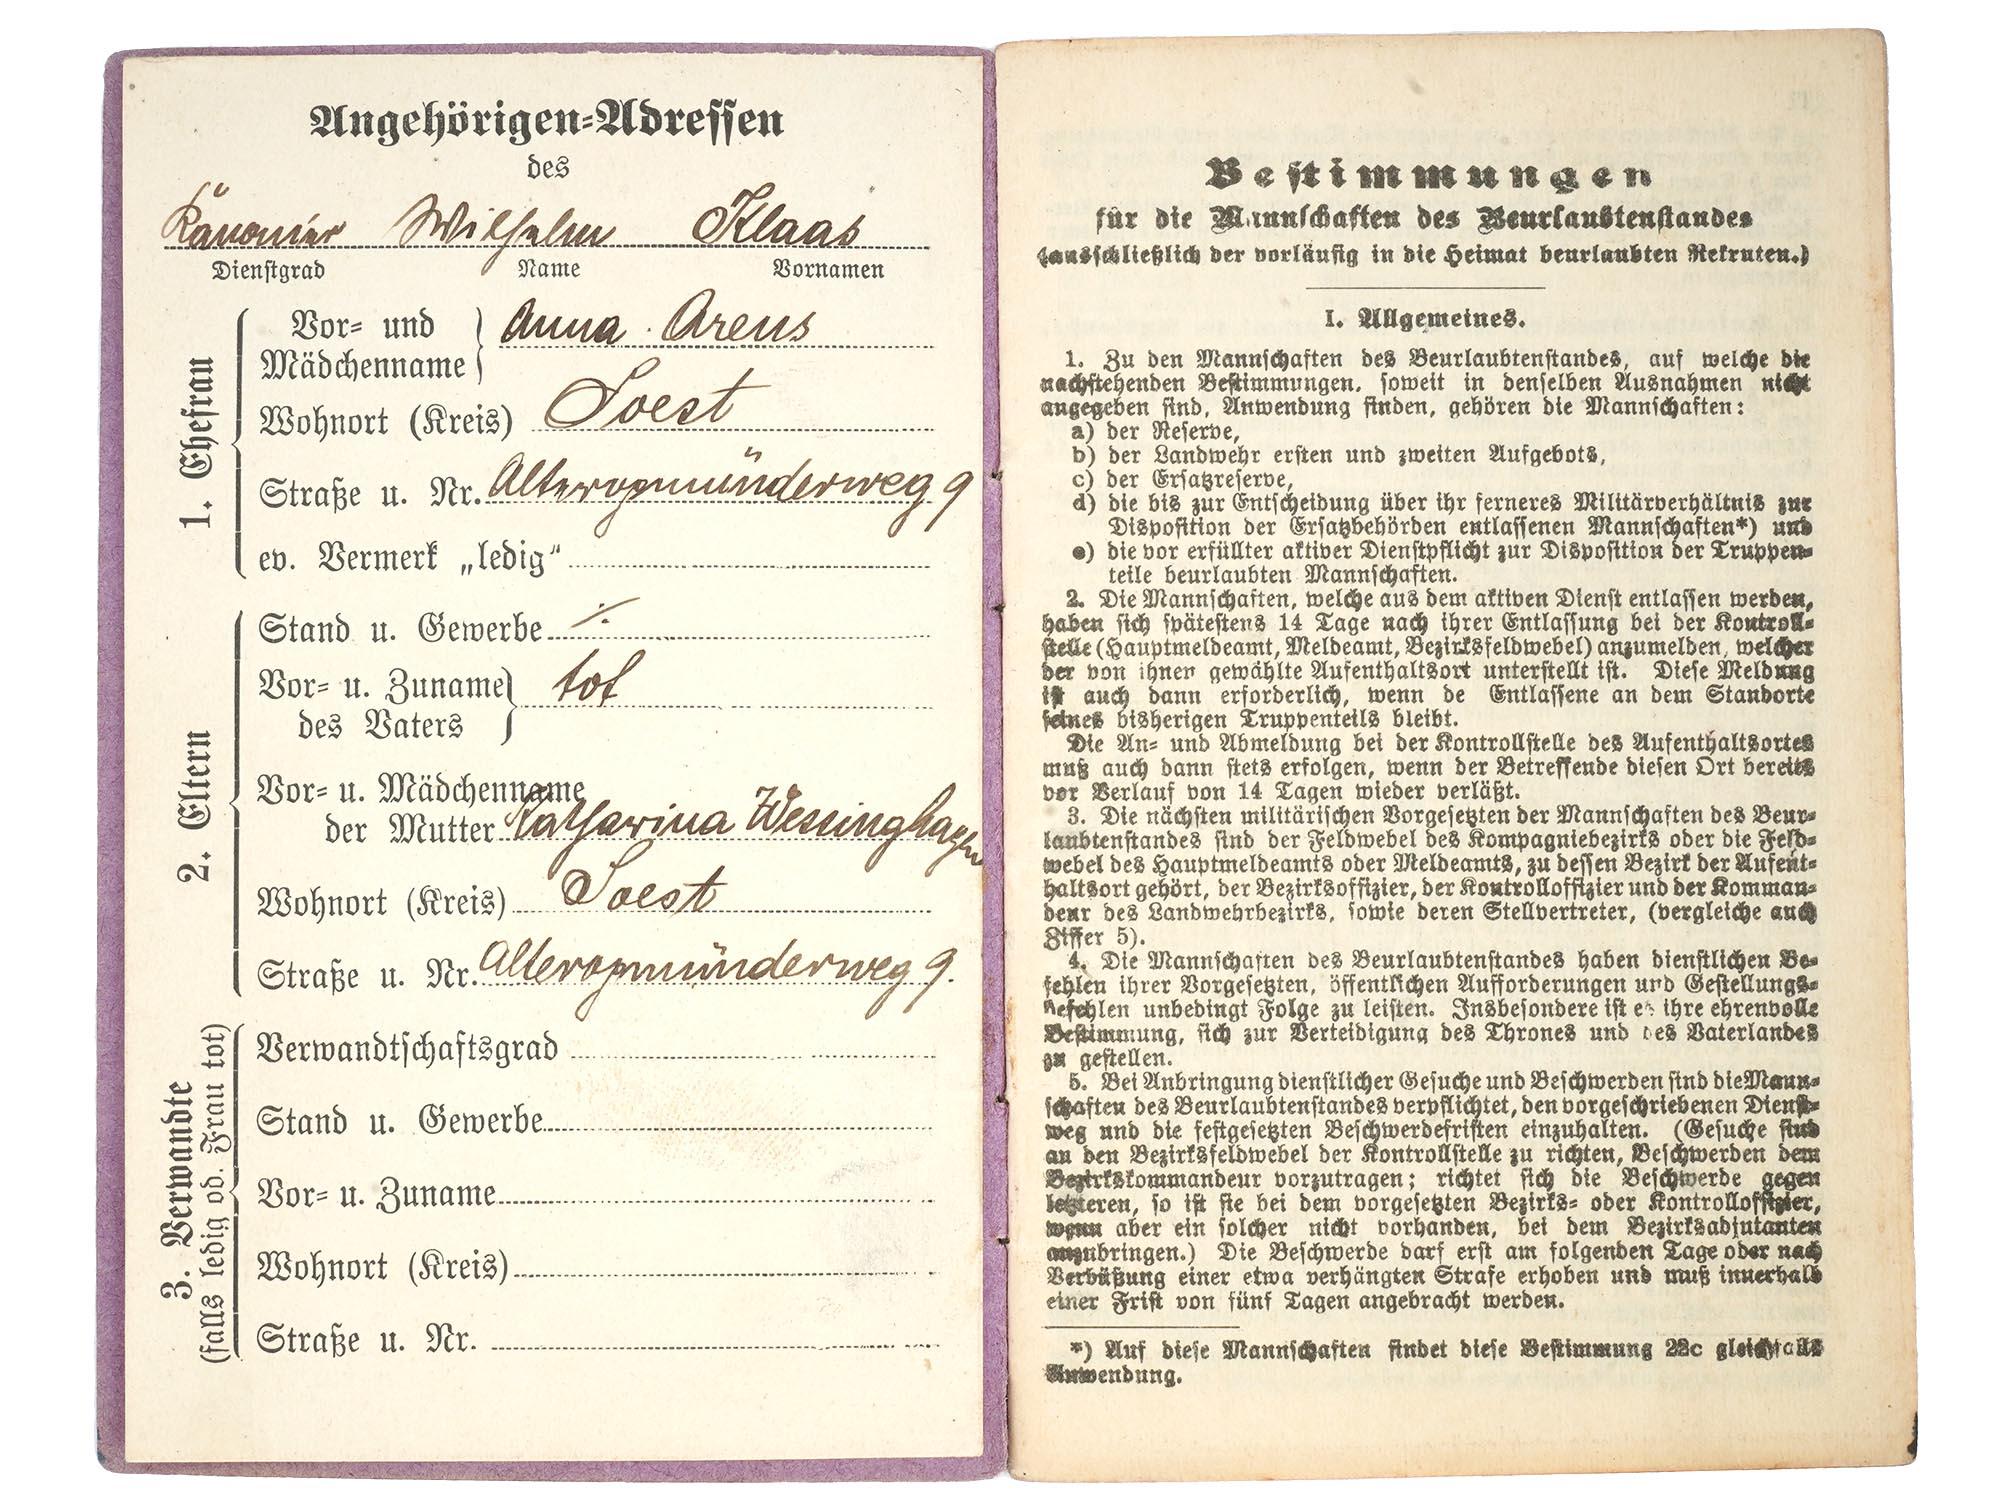 Angehörigen-Adressen
des
Kanonier Wilhelm Klaas
Dienstgrad Name Vornamen
1. Ehefrau
Vor- und
Mädchenname
Anna Arens
Wohnort (Kreis) Soest
Straße u. Nr. Alteropmünderweg 9
ev. Vermerk „ledig“
2. Eltern
Stand u. Gewerbe ./.
Vor- u. Zuname
des Vaters
tot
Vor- u. Mädchenname
der Mutter Katharina Wessinghagen
Wohnort (Kreis) Soest
Straße u. Nr. Alteropmünderweg 9.
3. Verwandte
(falls ledig od. Frau tot)
Verwandtschaftsgrad
Stand u. Gewerbe
Vor- u. Zuname
Wohnort (Kreis)
Straße u. Nr.
Bestimmungen
für die Mannschaften des Beurlaubtenstandes
(ausschließlich der vorläufig in die Heimat beurlaubten Rekruten.)
I. Allgemeines.
1. Zu den Mannschaften des Beurlaubtenstandes, auf welche die
nachstehenden Bestimmungen, soweit in denselben Ausnahmen nicht
angegeben sind, Anwendung finden, gehören die Mannschaften:
a) der Reserve,
b) der Landwehr ersten und zweiten Aufgebots,
c) der Ersatzreserve,
d) die bis zur Entscheidung über ihr ferneres Militärverhältnis zur
Disposition der Ersatzbehörden entlassenen Mannschaften*) und
e) die vor erfüllter aktiver Dienstpflicht zur Disposition der Truppen-
teile beurlaubten Mannschaften.
2. Die Mannschaften, welche aus dem aktiven Dienst entlassen werden,
haben sich spätestens 14 Tage nach ihrer Entlassung bei der Kontroll-
stelle (Hauptmeldeamt, Meldeamt, Bezirksfeldwebel) anzumelden, welcher
der von ihnen gewählte Aufenthaltsort unterstellt ist. Diese Meldung
ist auch dann erforderlich, wenn de Entlassene an dem Standorte
seines bisherigen Truppenteils bleibt.
Die An- und Abmeldung bei der Kontrollstelle des Aufenthaltsortes
muß auch dann stets erfolgen, wenn der Betreffende diesen Ort bereits
vor Verlauf von 14 Tagen wieder verläßt.
3. Die nächsten militärischen Vorgesetzten der Mannschaften des Beur-
laubtenstandes sind der Feldwebel des Kompagniebezirks oder die Feld-
webel des Hauptmeldeamts oder Meldeamts, zu dessen Bezirk der Aufent-
haltsort gehört, der Bezirksoffizier, der Kontrolloffizier und der Komman-
deur des Landwehrbezirks, sowie deren Stellvertreter, (vergleiche auch
Ziffer 5).
4. Die Mannschaften des Beurlaubtenstandes haben dienstlichen Be-
fehlen ihrer Vorgesetzten, öffentlichen Aufforderungen und Gestellungs-
befehlen unbedingt Folge zu leisten. Insbesondere ist es ihre ehrenvolle
Bestimmung, sich zur Verteidigung des Thrones und des Vaterlandes
zu gestellen.
5. Bei Anbringung dienstlicher Gesuche und Beschwerden sind die Mann-
schaften des Beurlaubtenstandes verpflichtet, den vorgeschriebenen Dienst-
weg und die festgesetzten Beschwerdefristen einzuhalten. (Gesuche sind
an den Bezirksfeldwebel der Kontrollstelle zu richten, Beschwerden dem
Bezirkskommandeur vorzutragen; richtet sich die Beschwerde gegen
letzteren, so ist sie bei dem vorgesetzten Bezirks- oder Kontrolloffizier,
wenn aber ein solcher nicht vorhanden, bei dem Bezirksadjutanten
anzubringen.) Die Beschwerde darf erst am folgenden Tage oder nach
Verbüßung einer etwa verhängten Strafe erhoben und muß innerhalb
einer Frist von fünf Tagen angebracht werden.
*) Auf diese Mannschaften findet diese Bestimmung 22c gleichfalls
Anwendung.